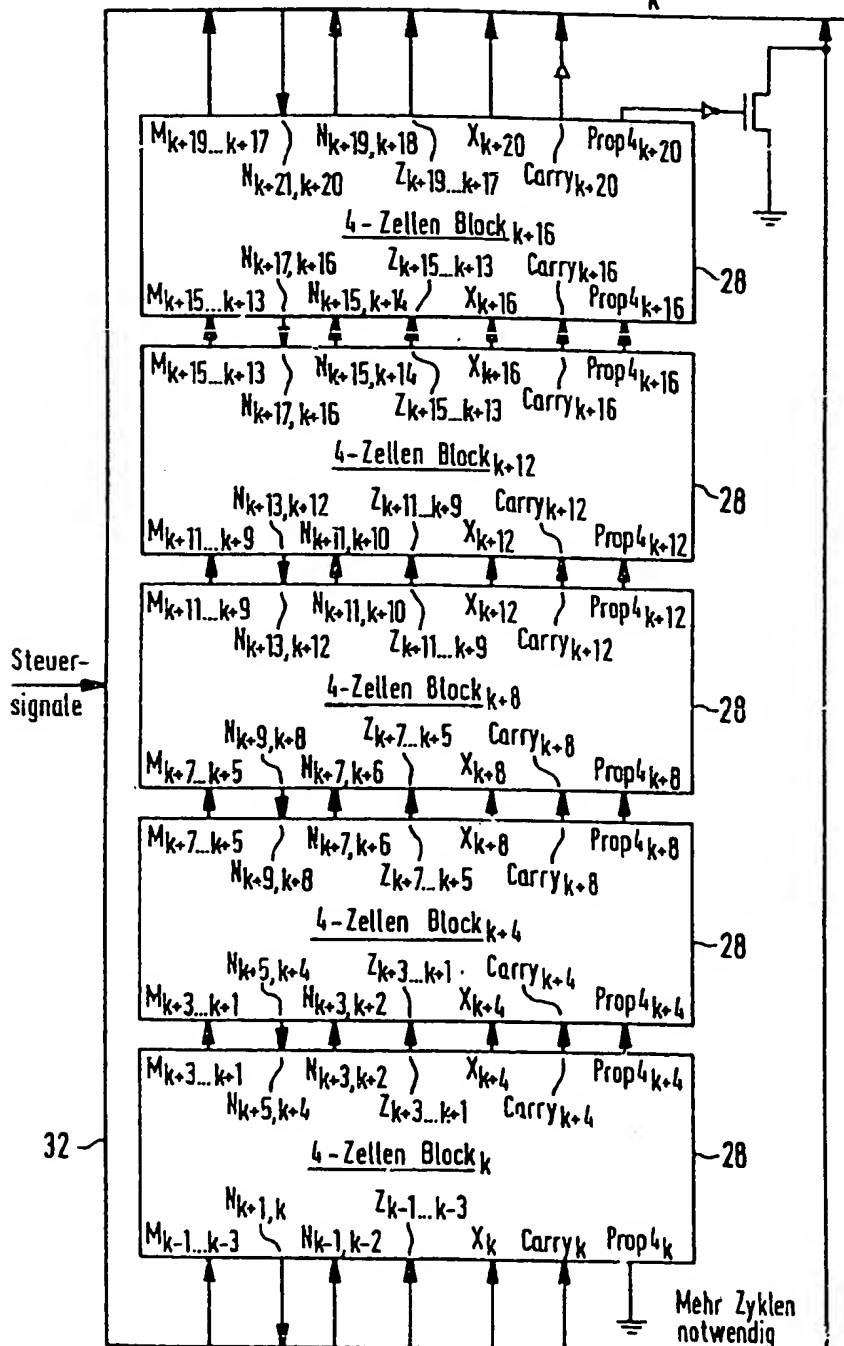 k
M k+19...k+17 N k+19, k+18 X k+20 Prop4 k+20
N k+21, k+20 Z k+19...k+17 Carry k+20
4-Zellen Block k+16
N k+17, k+16 Z k+15...k+13 Carry k+16
28
M k+15...k+13 N k+15, k+14 X k+16 Prop4 k+16
M k+15...k+13 N k+15, k+14 X k+16 Prop4 k+16
N k+17, k+16 Z k+15...k+13 Carry k+16
4-Zellen Block k+12
N k+13, k+12 Z k+11...k+9 Carry k+12
28
M k+11...k+9 N k+11, k+10 X k+12 Prop4 k+12
M k+11...k+9 N k+11, k+10 X k+12 Prop4 k+12
N k+13, k+12 Z k+11...k+9 Carry k+12
Steuer-
signale
4-Zellen Block k+8
28
N k+9, k+8 Z k+7...k+5 Carry k+8
M k+7...k+5 N k+7, k+6 X k+8 Prop4 k+8
M k+7...k+5 N k+7, k+6 X k+8 Prop4 k+8
N k+9, k+8 Z k+7...k+5 Carry k+8
4-Zellen Block k+4
28
N k+5, k+4 Z k+3...k+1 Carry k+4
M k+3...k+1 N k+3, k+2 X k+4 Prop4 k+4
M k+3...k+1 N k+3, k+2 X k+4 Prop4 k+4
N k+5, k+4 Z k+3...k+1 Carry k+4
32
4-Zellen Block k
28
N k+1, k Z k-1...k-3
M k-1...k-3 N k-1, k-2 X k Carry k Prop4 k
Mehr Zyklen
notwendig